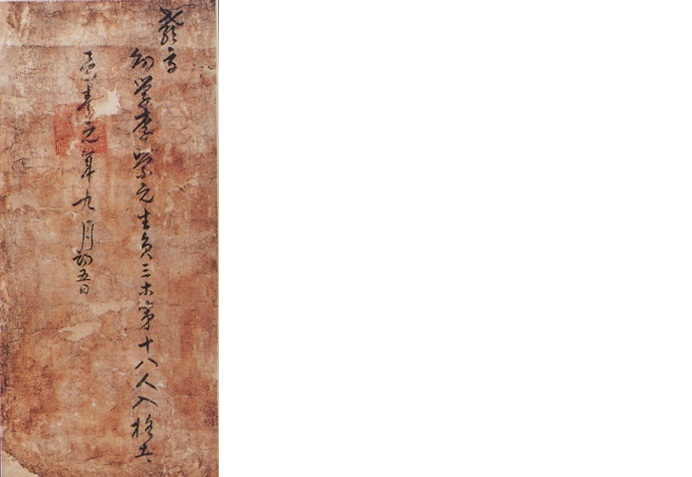 教旨
幼學李崇元生員三等第十八人入格者
景泰元年九月初五日